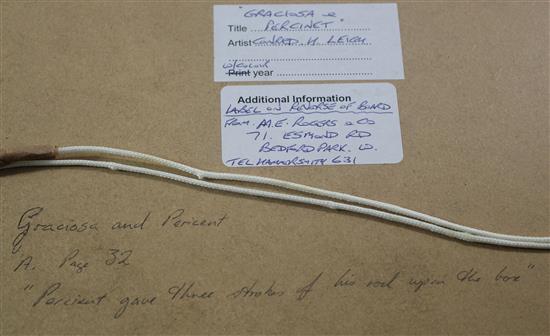 "GRACIOSA &
Title PERCINET"
Artist CONRAD H. LEIGH
W/COLOUR
Print year
Additional Information
LABEL ON REVERSE OF BOARD
FROM A.E. ROGERS & CO
71. ESMOND RD
BEDFORD PARK. W.
TEL HAMMERSMITH 631
Graciosa and Percinet
"A. Page 32
"Percinet gave three strokes of his rod upon the box"